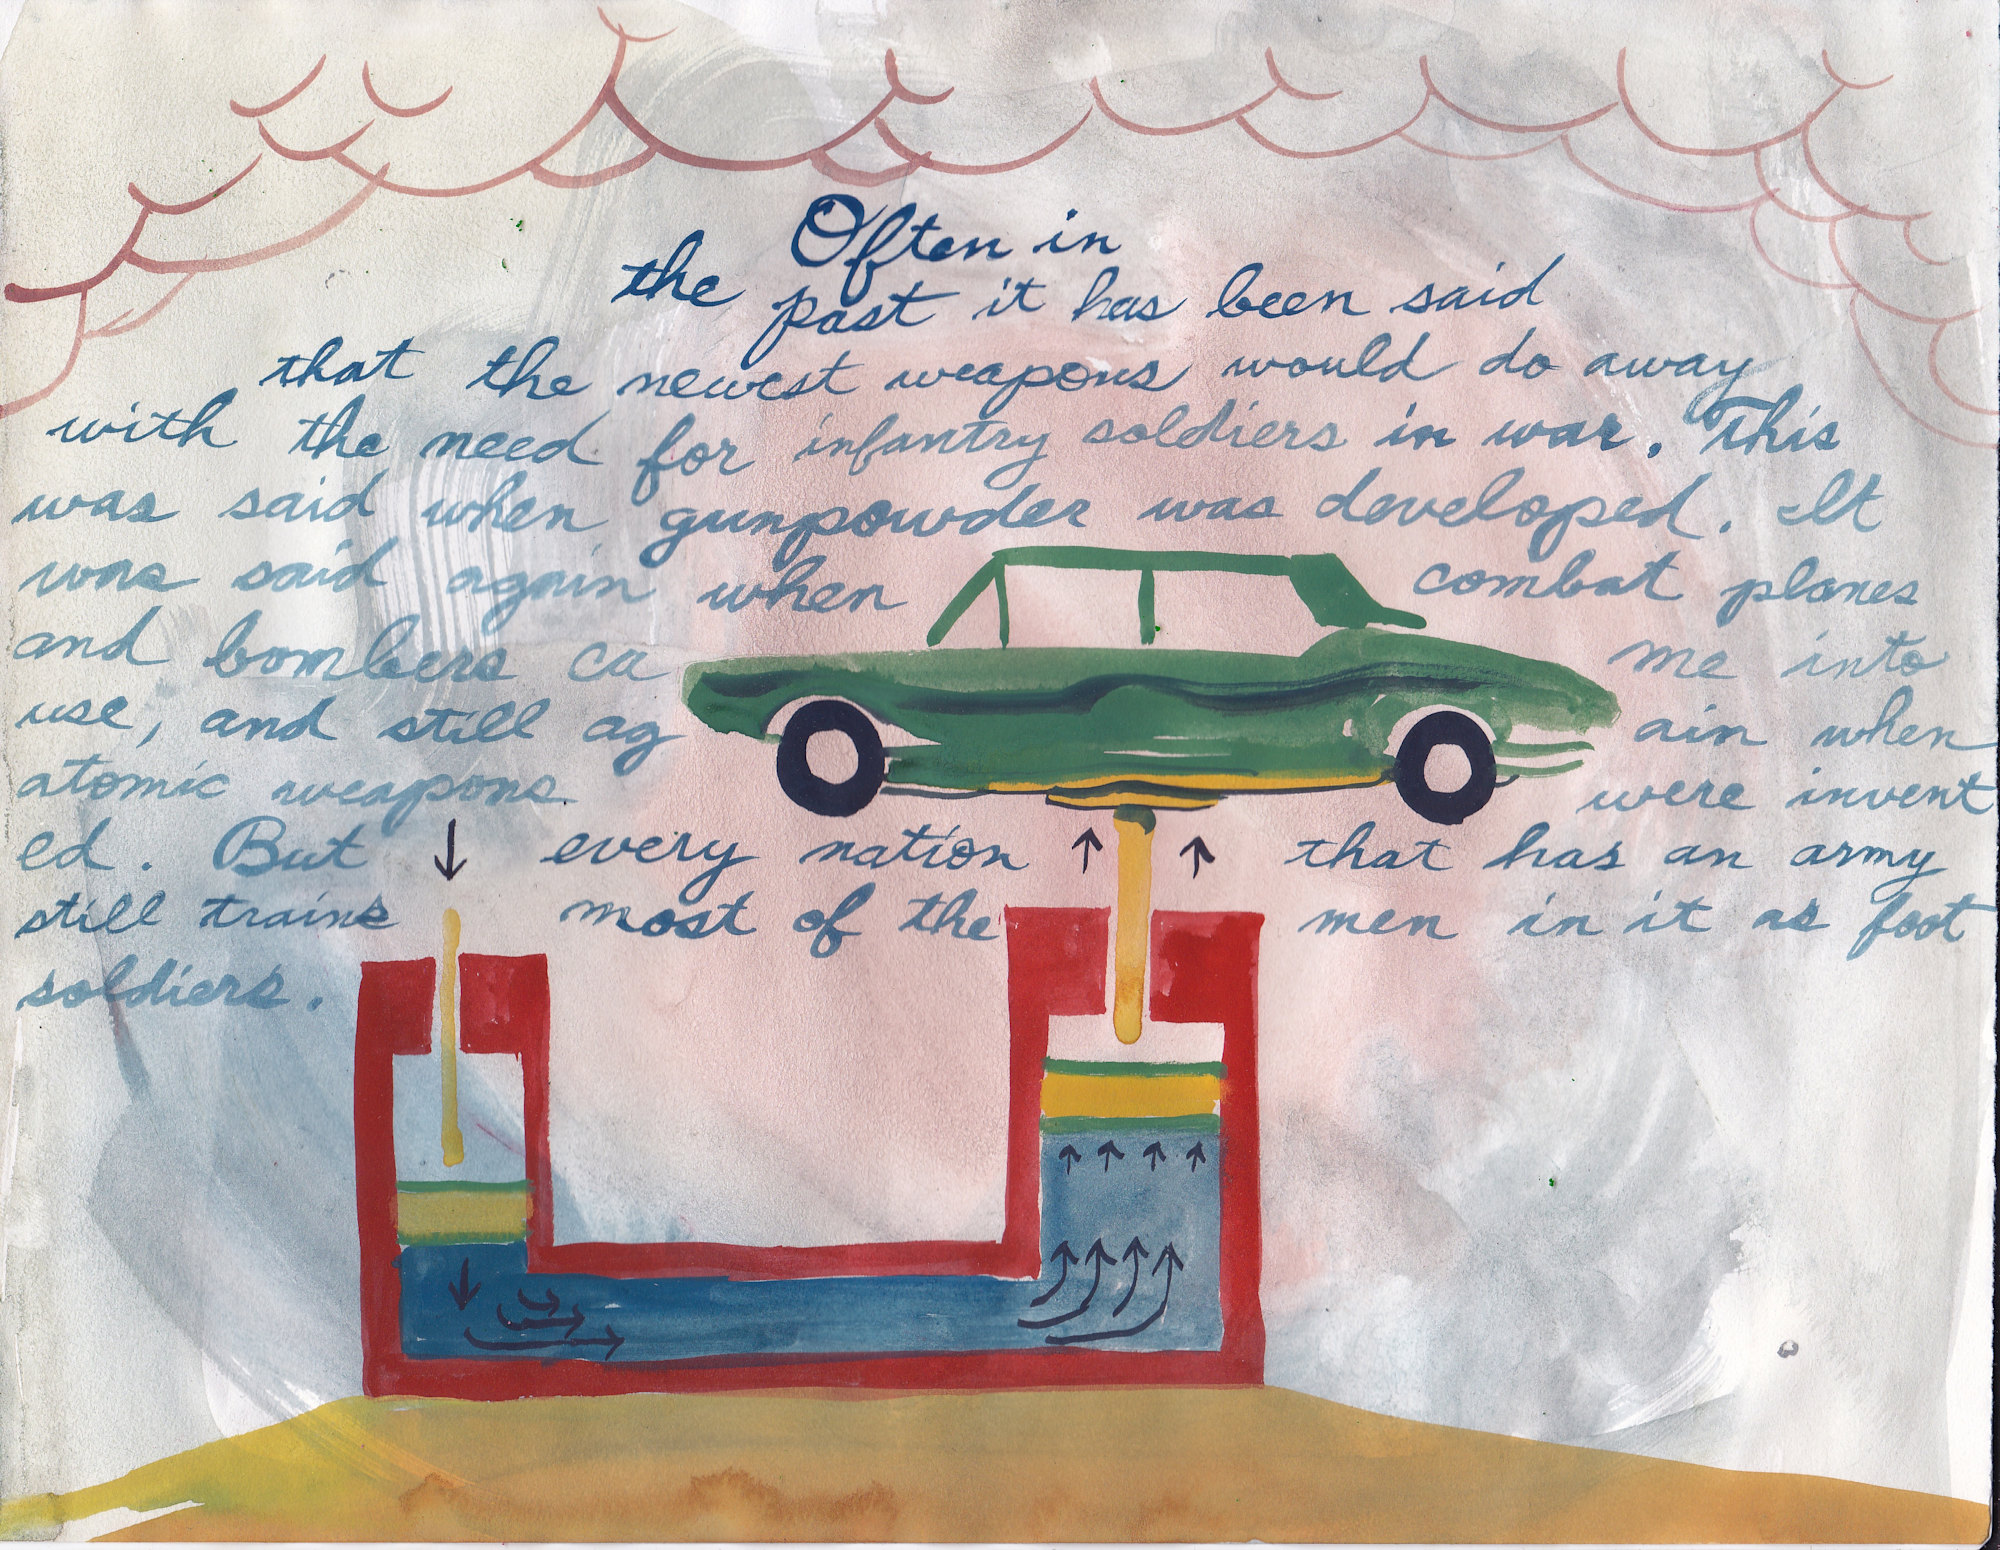 Often in
the past it has been said
that the newest weapons would do away
with the need for infantry soldiers in war. This
was said when gunpowder was developed. It
was said again when combat planes
and bombers ca me into
use, and still ag ain when
atomic weapons were invent
ed. But every nation that has an army
still trains most of the men in it as foot
soldiers.